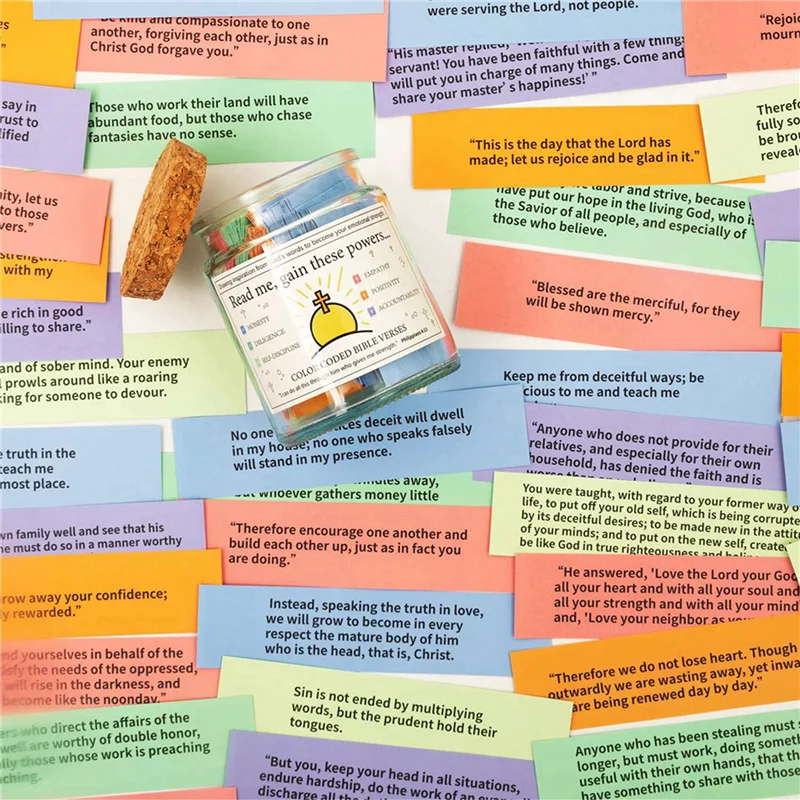 were serving the Lord, not people.
"Rejoi
mourn
Be kind and compassionate to one
another, forgiving each other, just as in
Christ God forgave you."
"His master replied,
servant! You have been faithful with a few things
will put you in charge of many things. Come and
share your master's happiness!'"
say in
rust to
lified
Those who work their land will have
abundant food, but those who chase
fantasies have no sense.
"This is the day that the Lord has
made; let us rejoice and be glad in it."
Therefo
fully so
be brou
reveale
nity, let us
to those
vers."
labor and strive, because
have put our hope in the living God, who is
the Savior of all people, and especially of
those who believe.
strengthen
with my
Drawing inspiration from God's words to become your emotional things
Read me, gain these powers...
HONESTY
DILIGENCE
SELF-DISCIPLINE
EMPATHY
POSITIVITY
ACCOUNTABILITY
COLOR CODED BIBLE VERSES
"I can do all this through him who gives me strength." Philippians 4:13
"Blessed are the merciful, for they
will be shown mercy."
e rich in good
illing to share."
and of sober mind. Your enemy
prowls around like a roaring
king for someone to devour.
Keep me from deceitful ways; be
cious to me and teach me
No one
ices deceit will dwell
in my house; no one who speaks falsely
will stand in my presence.
"Anyone who does not provide for their
relatives, and especially for their own
household, has denied the faith and is
e truth in the
teach me
most place.
away,
but whoever gathers money little
You were taught, with regard to your former way o
life, to put off your old self, which is being corrupte
by its deceitful desires; to be made new in the attitu
of your minds; and to put on the new self, create
be like God in true righteousness and
wn family well and see that his
he must do so in a manner worthy
"Therefore encourage one another and
build each other up, just as in fact you
are doing."
row away your confidence;
ly rewarded."
"He answered, 'Love the Lord your God
all your heart and with all your soul and
all your strength and with all your mind
and, 'Love your neighbor as
Instead, speaking the truth in love,
we will grow to become in every
respect the mature body of him
who is the head, that is, Christ.
nd yourselves in behalf of the
sfy the needs of the oppressed,
will rise in the darkness, and
become like the noonday."
"Therefore we do not lose heart. Though
outwardly we are wasting away, yet inwa
are being renewed day by day."
Sin is not ended by multiplying
words, but the prudent hold their
tongues.
ers who direct the affairs of the
well are worthy of double honor,
lly those whose work is preaching
ching.
"But you, keep your head in all situations,
endure hardship, do the work of an
discharge all the
Anyone who has been stealing must s
longer, but must work, doing someth
useful with their own hands, that th
have something to share with those